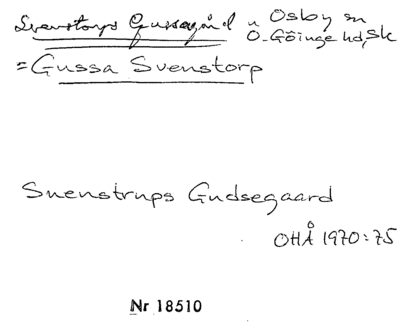 Svenstorps Gussagård i Osby sn
Ö. Göinge hd, Sk
= Gussa Svenstorp
Svenstrups Gudsegaard
OHÅ 1970:75
Nr 18510